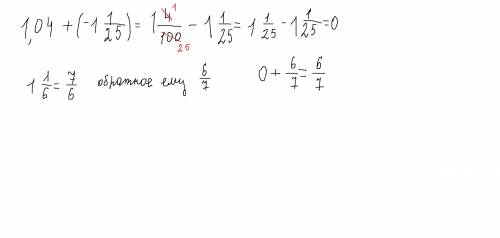 1,04 + (-1 1/25) = 1 4/100 1 25 - 1 1/25 = 1 1/25 - 1 1/25 = 0
1 1/6 = 7/6 обратное ему 6/7 0 + 6/7 = 6/7